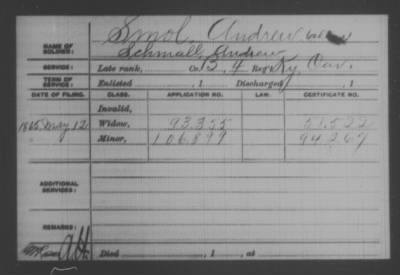 Smol, Andrew
NAME OF SOLDIER: Schmall, Andrew
SERVICE: Late rank, Co. B, 4 Reg't Ky. Cav.
TERM OF SERVICE: Enlisted , 1 Discharged , 1
DATE OF FILING. CLASS. APPLICATION NO. LAW. CERTIFICATE NO.
Invalid,
1865 May 12 Widow, 93.355 51.522
Minor, 106.899 94.267
ADDITIONAL SERVICES:
REMARKS:
Died , 1 , at